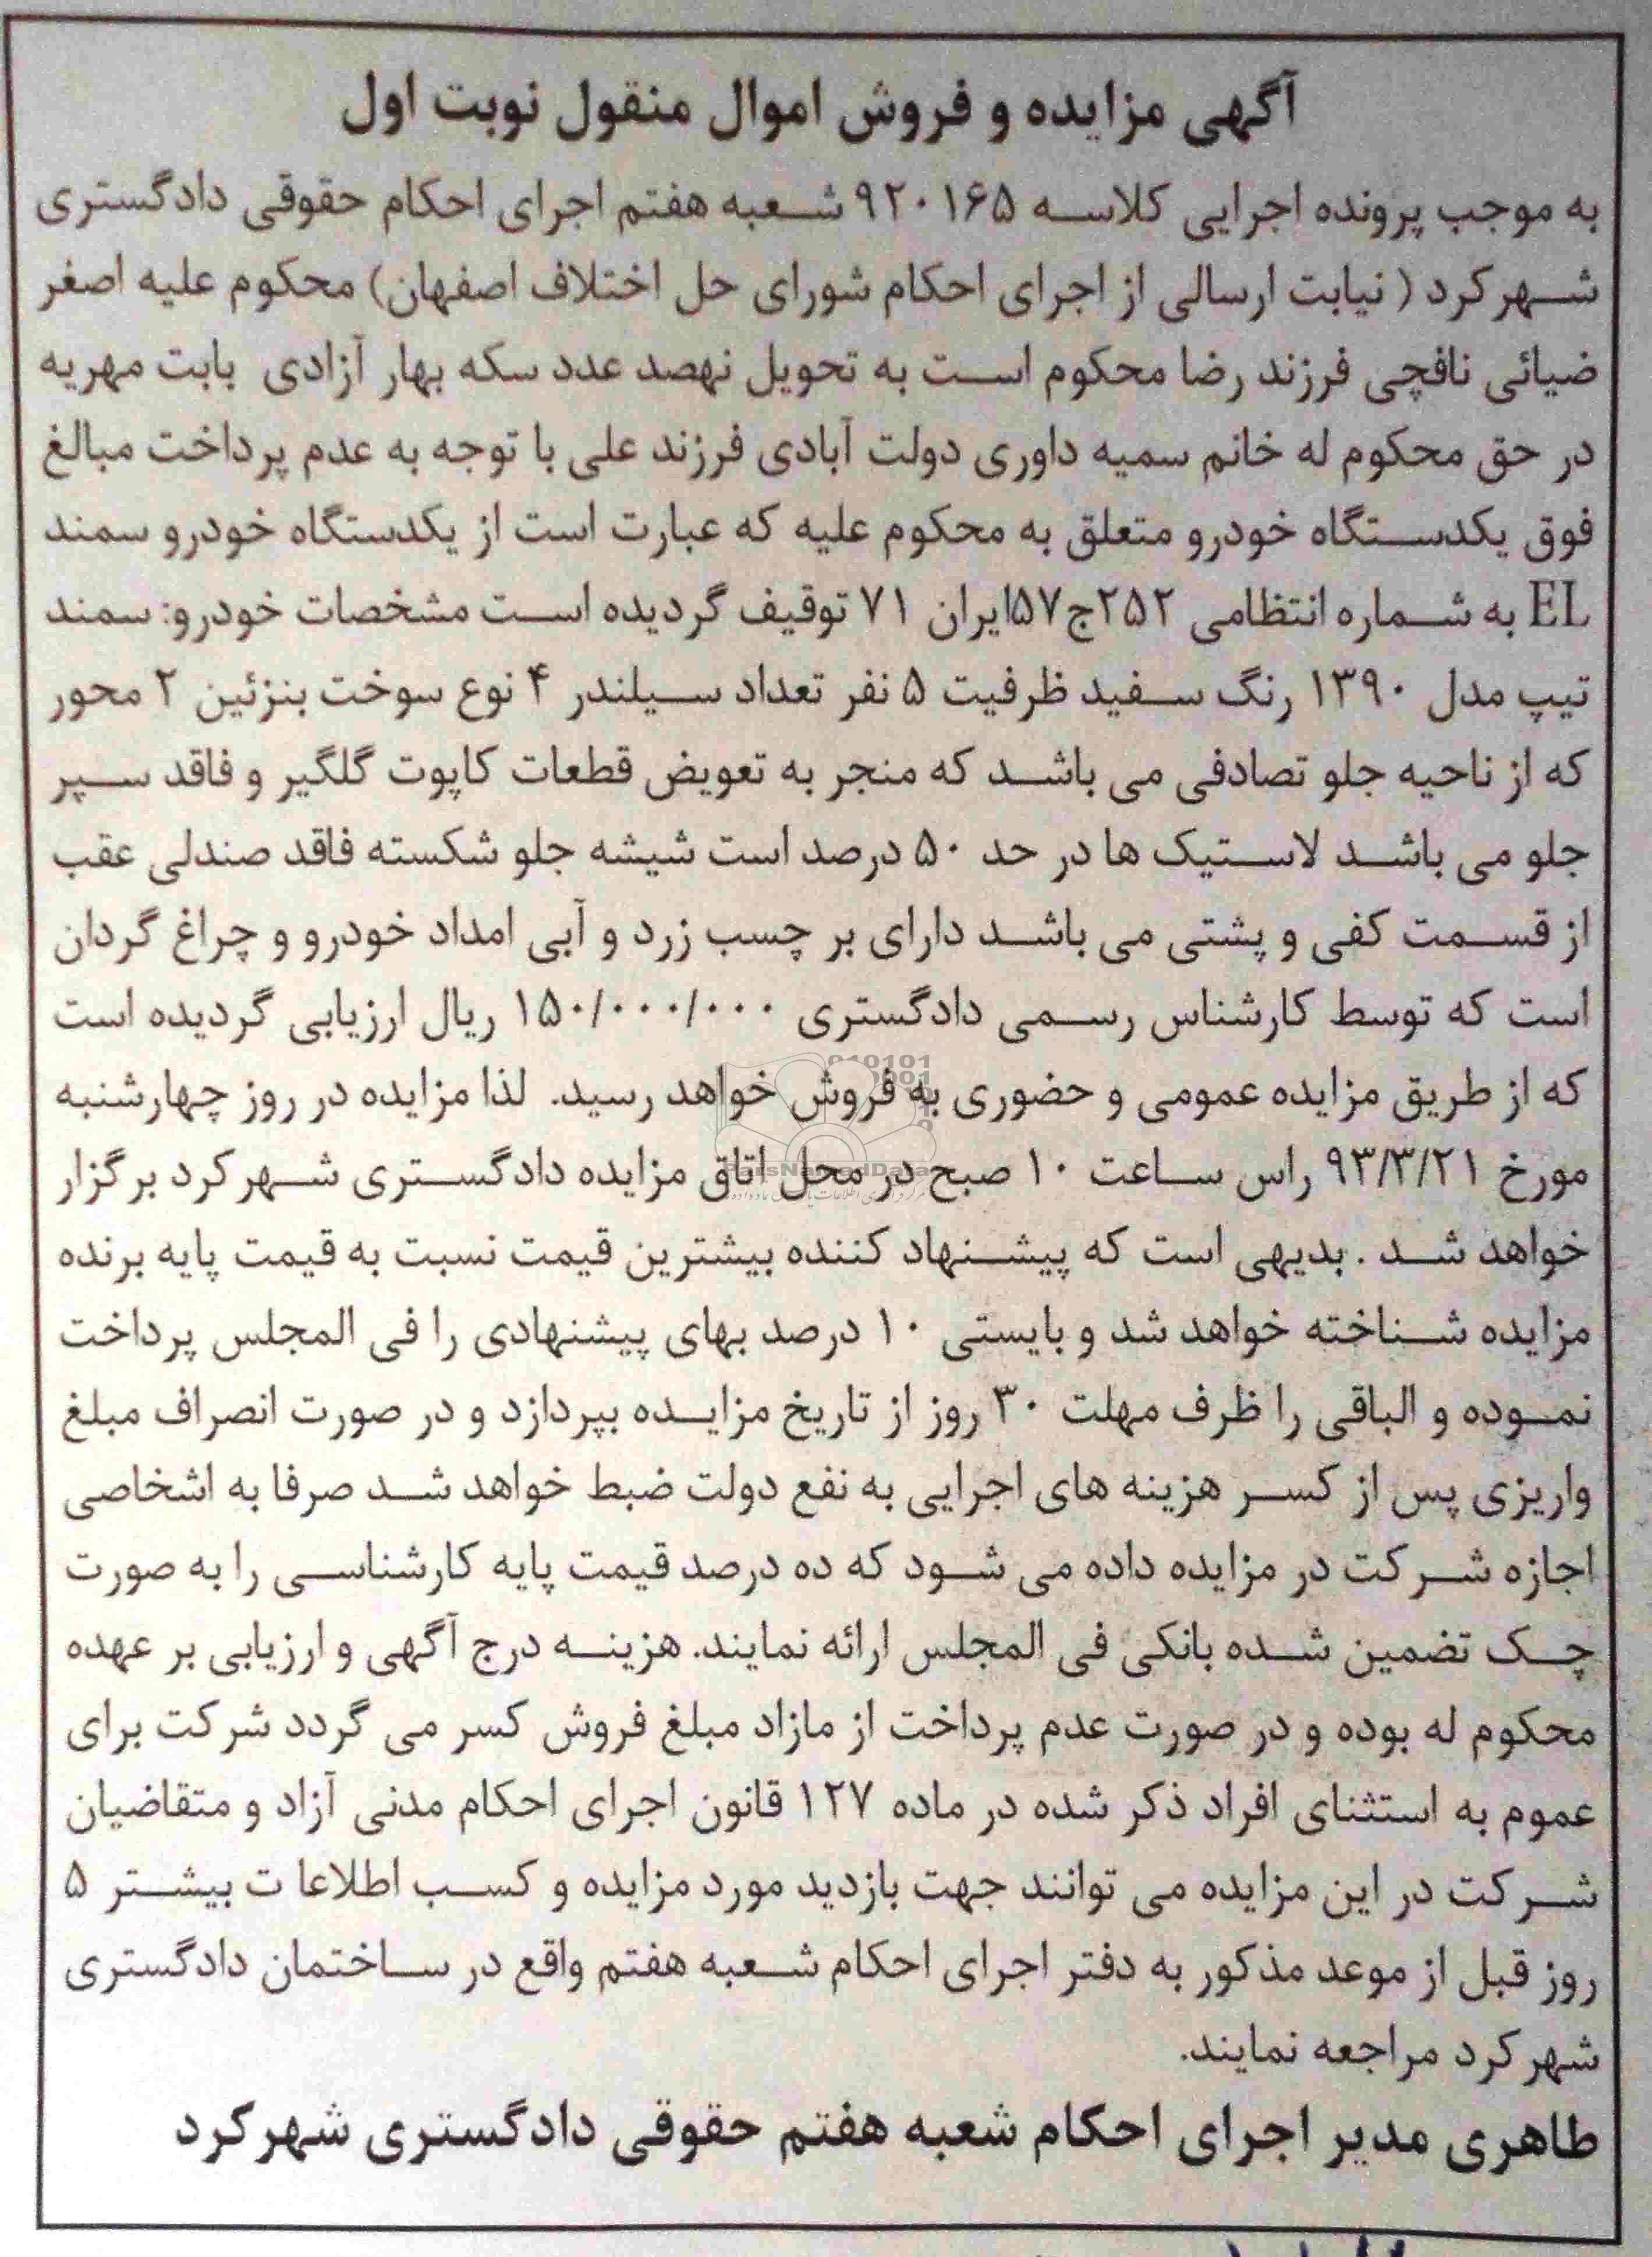 آگهی مزایده و فروش اموال منقول نوبت اول
به موجب پرونده اجرایی کلاسه ۹۲۰۱۶۵ شعبه هفتم اجرای احکام حقوقی دادگستری
شهرکرد ( نیابت ارسالی از اجرای احکام شورای حل اختلاف اصفهان) محکوم علیه اصغر
ضیائی نافچی فرزند رضا محکوم است به تحویل نهصد عدد سکه بهار آزادی بابت مهریه
در حق محکوم له خانم سمیه داوری دولت آبادی فرزند علی با توجه به عدم پرداخت مبالغ
فوق یکدستگاه خودرو متعلق به محکوم علیه که عبارت است از یکدستگاه خودرو سمند
EL به شماره انتظامی ۲۵۲ج۵۷ایران ۷۱ توقیف گردیده است مشخصات خودرو: سمند
تیپ مدل ۱۳۹۰ رنگ سفید ظرفیت ۵ نفر تعداد سیلندر ۴ نوع سوخت بنزئین ۲ محور
که از ناحیه جلو تصادفی می باشد که منجر به تعویض قطعات کاپوت گلگیر و فاقد سپر
جلو می باشد لاستیک ها در حد ۵۰ درصد است شیشه جلو شکسته فاقد صندلی عقب
از قسمت کفی و پشتی می باشد دارای بر چسب زرد و آبی امداد خودرو و چراغ گردان
است که توسط کارشناس رسمی دادگستری ۱۵۰/۰۰۰/۰۰۰ ریال ارزیابی گردیده است
که از طریق مزایده عمومی و حضوری به فروش خواهد رسید. لذا مزایده در روز چهارشنبه
مورخ ۹۳/۳/۲۱ راس ساعت ۱۰ صبح در محل اتاق مزایده دادگستری شهرکرد برگزار
خواهد شد . بدیهی است که پیشنهاد کننده بیشترین قیمت نسبت به قیمت پایه برنده
مزایده شناخته خواهد شد و بایستی ۱۰ درصد بهای پیشنهادی را فی المجلس پرداخت
نموده و الباقی را ظرف مهلت ۳۰ روز از تاریخ مزایده بپردازد و در صورت انصراف مبلغ
واریزی پس از کسر هزینه های اجرایی به نفع دولت ضبط خواهد شد صرفا به اشخاصی
اجازه شرکت در مزایده داده می شود که ده درصد قیمت پایه کارشناسی را به صورت
چک تضمین شده بانکی فی المجلس ارائه نمایند. هزینه درج آگهی و ارزیابی بر عهده
محکوم له بوده و در صورت عدم پرداخت از مازاد مبلغ فروش کسر می گردد شرکت برای
عموم به استثنای افراد ذکر شده در ماده ۱۲۷ قانون اجرای احکام مدنی آزاد و متقاضیان
شرکت در این مزایده می توانند جهت بازدید مورد مزایده و کسب اطلاعا ت بیشتر ۵
روز قبل از موعد مذکور به دفتر اجرای احکام شعبه هفتم واقع در ساختمان دادگستری
شهرکرد مراجعه نمایند.
طاهری مدیر اجرای احکام شعبه هفتم حقوقی دادگستری شهرکرد